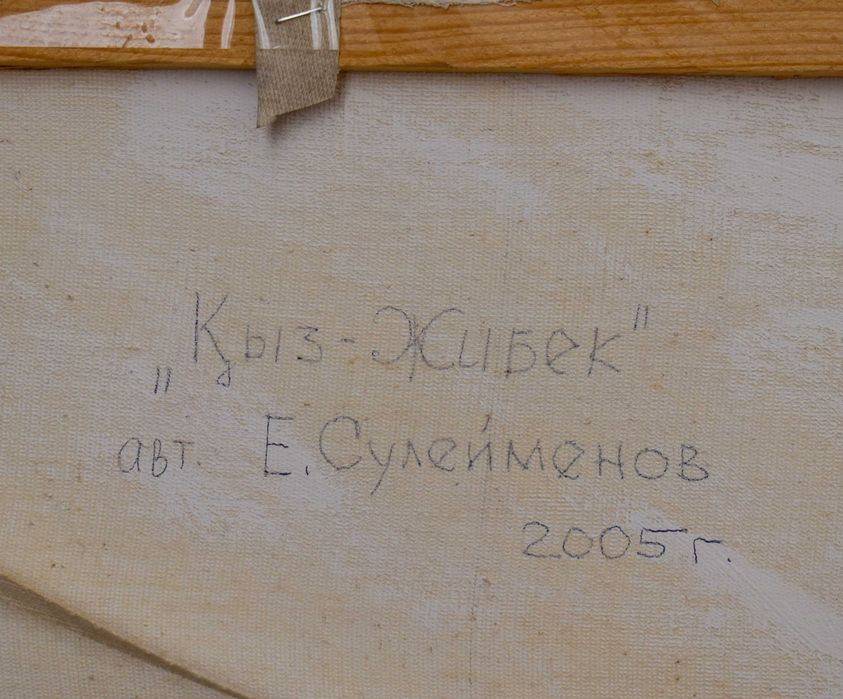 „Қыз-Жибек"
авт. Е. Сулейменов
2005 г.